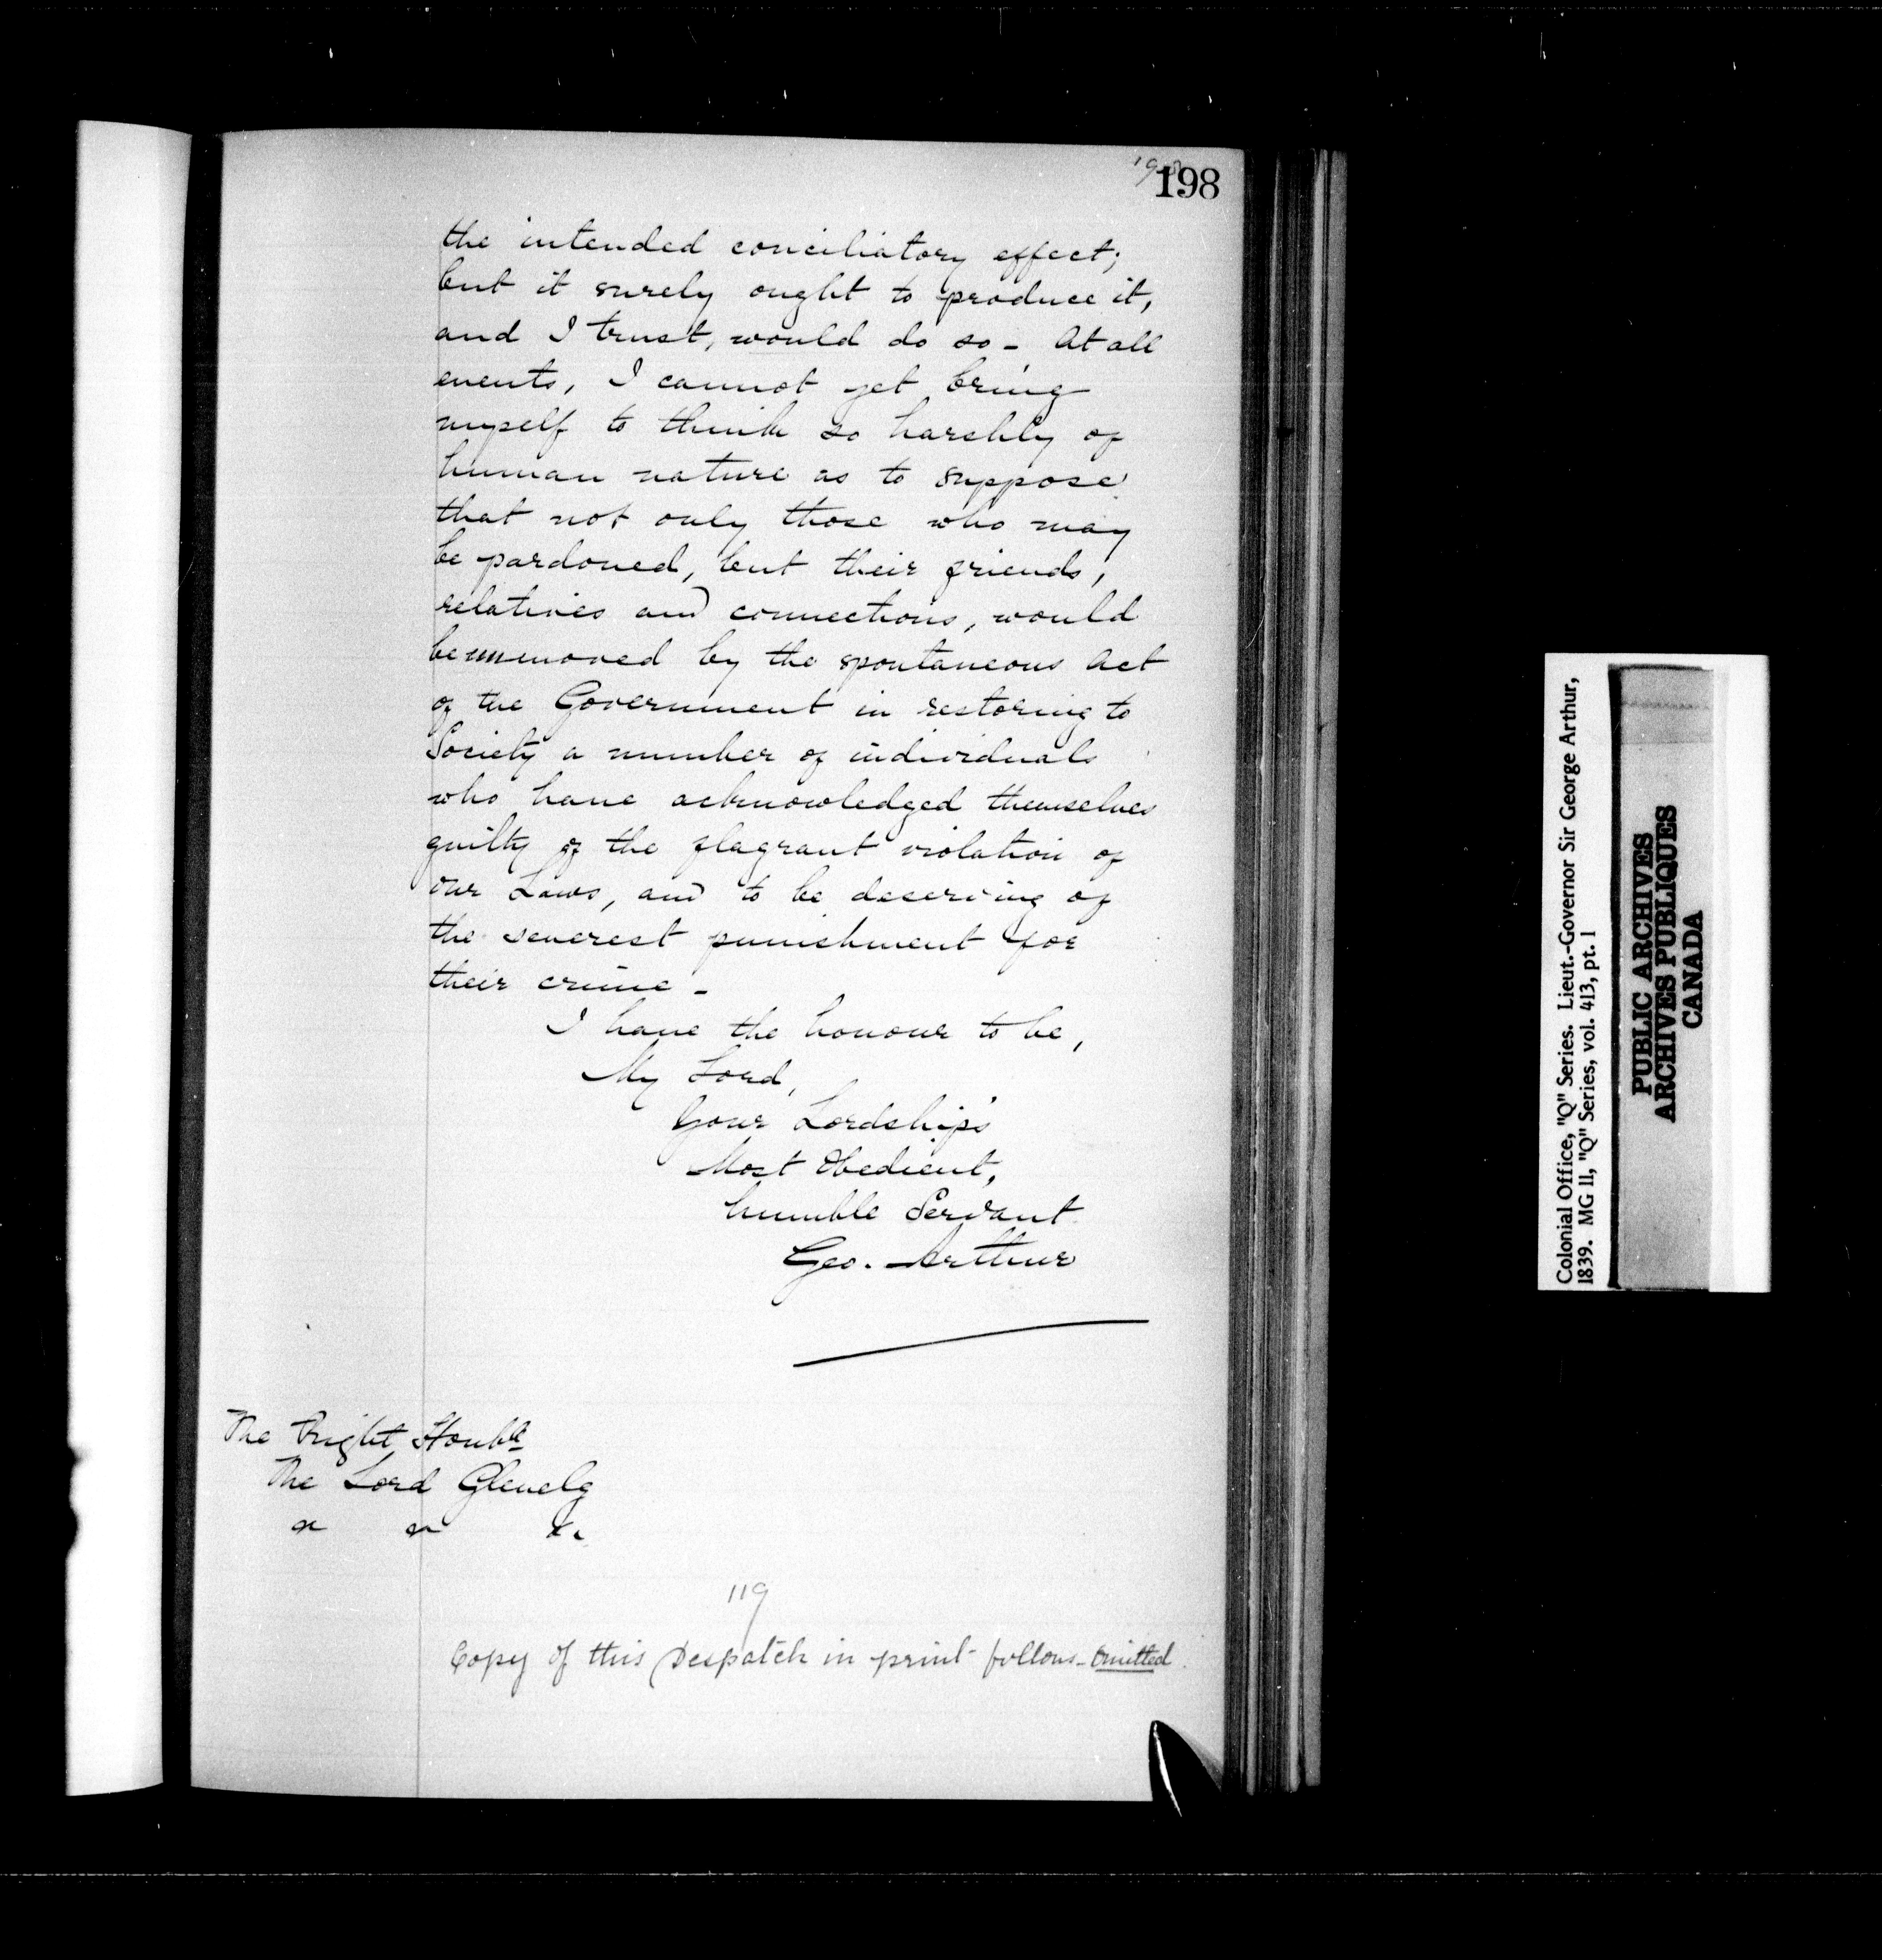 198
198
the intended conciliatory effect;
but it surely ought to produce it,
and I trust, would do so - At all
events, I cannot yet bring
myself to think so harshly of
human nature as to suppose
that not only those who may
be pardoned, but their friends,
relatives and connections, would
be unmoved by the spontaneous Act
of the Government in restoring to
Society a number of individuals
who have acknowledged themselves
guilty of the flagrant violation of
our Laws, and to be deserving of
the severest punishment for
their crime -
I have the honour to be,
My Lord,
Your Lordship's
Most Obedient,
humble Servant
Geo. Arthur
The Right Honble
The Lord Glenelg
119
Copy of this Despatch in print follows - Omitted
Colonial Office, "Q" Series. Lieut.-Governor Sir George Arthur,
1839. MG 11, "Q" Series, vol. 413, pt. 1
PUBLIC ARCHIVES
ARCHIVES PUBLIQUES
CANADA